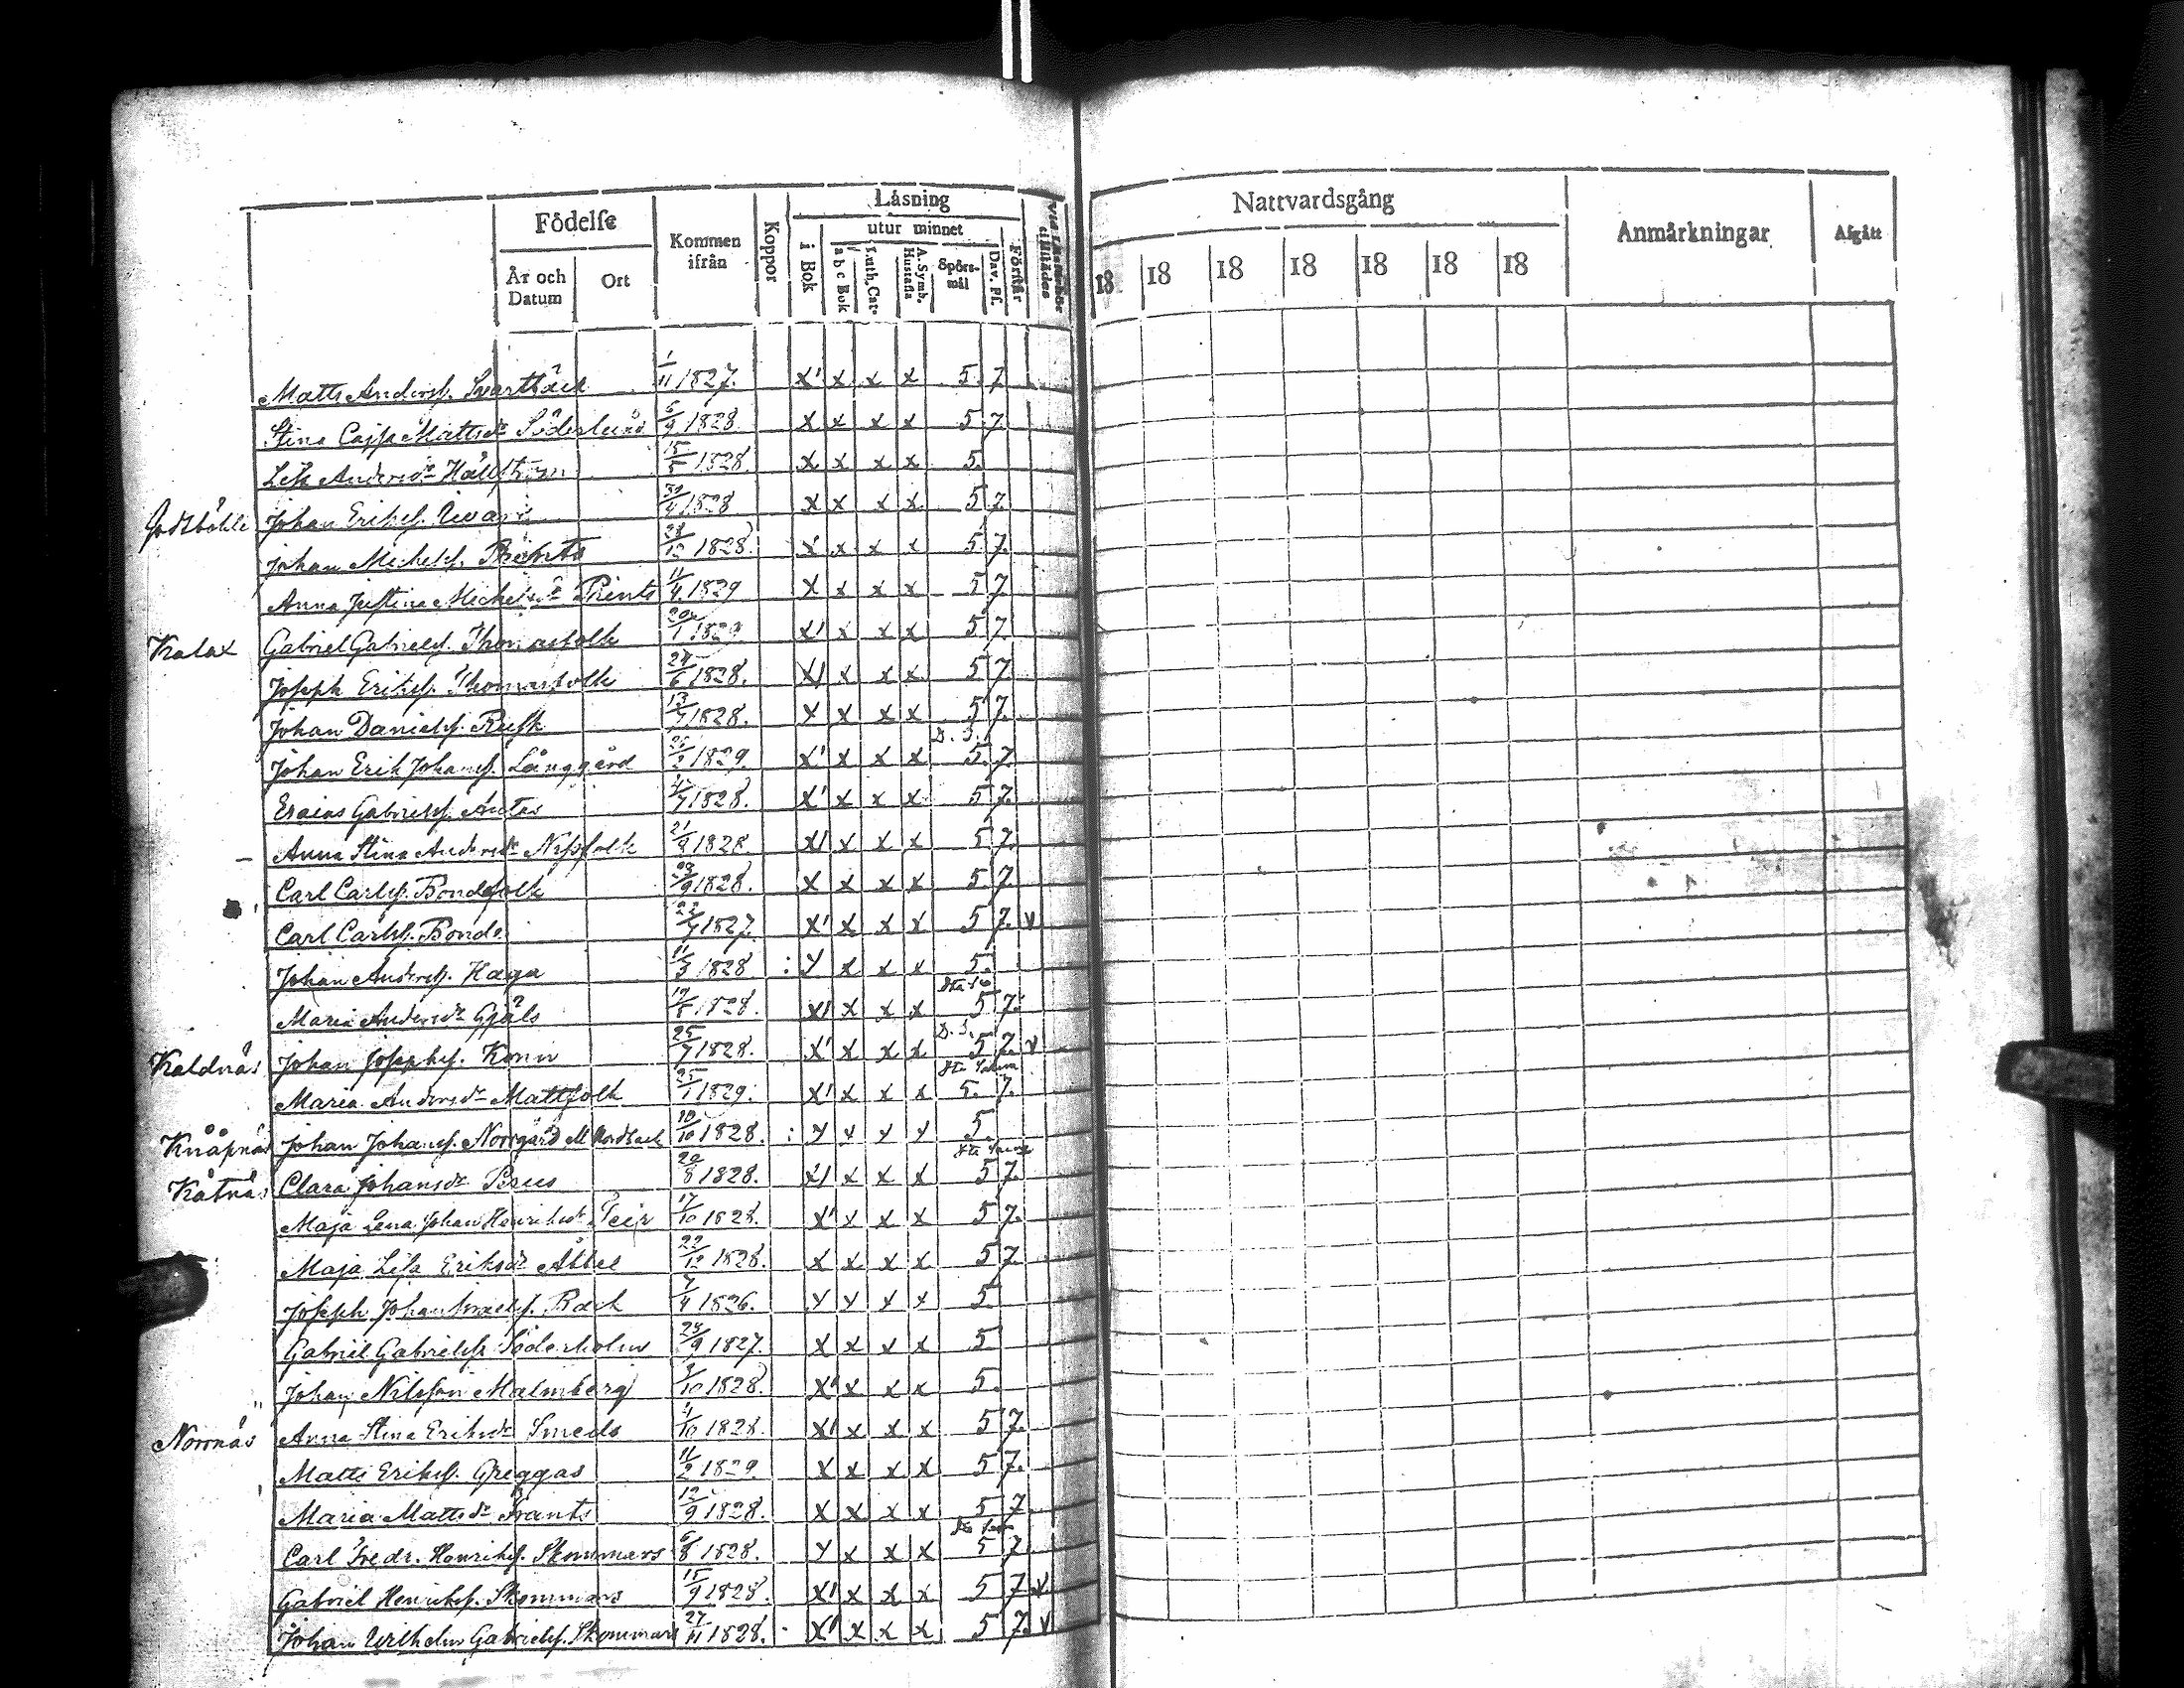 Födelse
År och Datum
Ort
Kommen ifrån
Koppor
Läsning
i Bok
utur minnet
a b c Bok
Luth. Cat.
A. Symb. Hustafla
Spörs-mål
Dav. Ps.
Förstår
Nattvardsgång
18 18 18 18 18 18 18
Anmärkningar
Afgått
Matts Anderss. Svartbäck 1/11 1827. x' x x x 5. 7
Stina Cajsa Mattsdr Söderlund 6/9 1828. x x x x 5 7.
Lisa Andersdr Hällström 15/5 1828. x x x x 5.
Gottböhle Johan Erikss. 30/4 1828 x x x x 5 7
Johan Michelss. Prents 28/12 1828. x x x x 5 7.
Anna Justina Michelsdr Prents 11/4 1829 x x x x 5 7
Kalax Gabriel Gabrielss. Thomasfolk 20/1 1829. x' x x x 5 7.
Joseph Erikss. Thomasfolk 24/6 1828. x' x x x 5 7.
Johan Danielss. Rusk 13/7 1828. x x x x 5 7.
Johan Erik Johanss. Långgård 26/2 1829. x' x x x D. S. 5. 7.
Esaias Gabrielss. Antas 1828. x' x x x 5 7.
Anna Stina Andersdr Nissfolk 21/9 1828. x' x x x 5 7.
Carl Carlss. Bondfolk 23/9 1828. x x x x 5. 7.
Carl Carlss. Bonde 22/4 1827. x' x x x 5 7. v
Johan Anderss. Haga 11/3 1828 : y x x x 5.
Maria Andersdr Gjäls 1828. x' x x x 5 7.
Kaldnäs Johan Josephss. Konn 25/7 1828. x' x x x D. S. 5 7. v
Maria Andersdr Mattfolk 25/1 1829. x' x x x 5. 7.
Knåpnäs Johan Johanss. Norrgård 10/10 1828. : y y y y 5.
Kåtnäs Clara Johansdr Perus 20/8 1828. x' x x x 5 7.
Maja Lena Johan Henriksdr Teir 17/10 1828. x' x x x 5 7.
Maja Lisa Eriksdr Åbbes 22/12 1828. x x x x 5 7.
Joseph Johan Back 7/4 1826. y y y y 5
Gabriel Gabrielss. Söderholm 28/9 1827. x x x x 5
Johan Nilsson Malmberg 9/10 1828. x' x x x 5.
Norrnäs Anna Stina Eriksdr Smeds 4/10 1828. x' x x x 5 7.
Matts Erikss. Greggas 11/2 1829 x x x x 5 7.
Maria Mattsdr Frants 12/9 1828. x x x x 5 7.
Carl Fredr. Henrikss. Skommars 6/8 1828. y x x x 5 7
Gabriel Henrikss. Skommars 15/9 1828. x' x x x 5 7. v
Johan Wilhelm Gabrielss. Skommars 27/11 1828. x' x x x 5 7. v